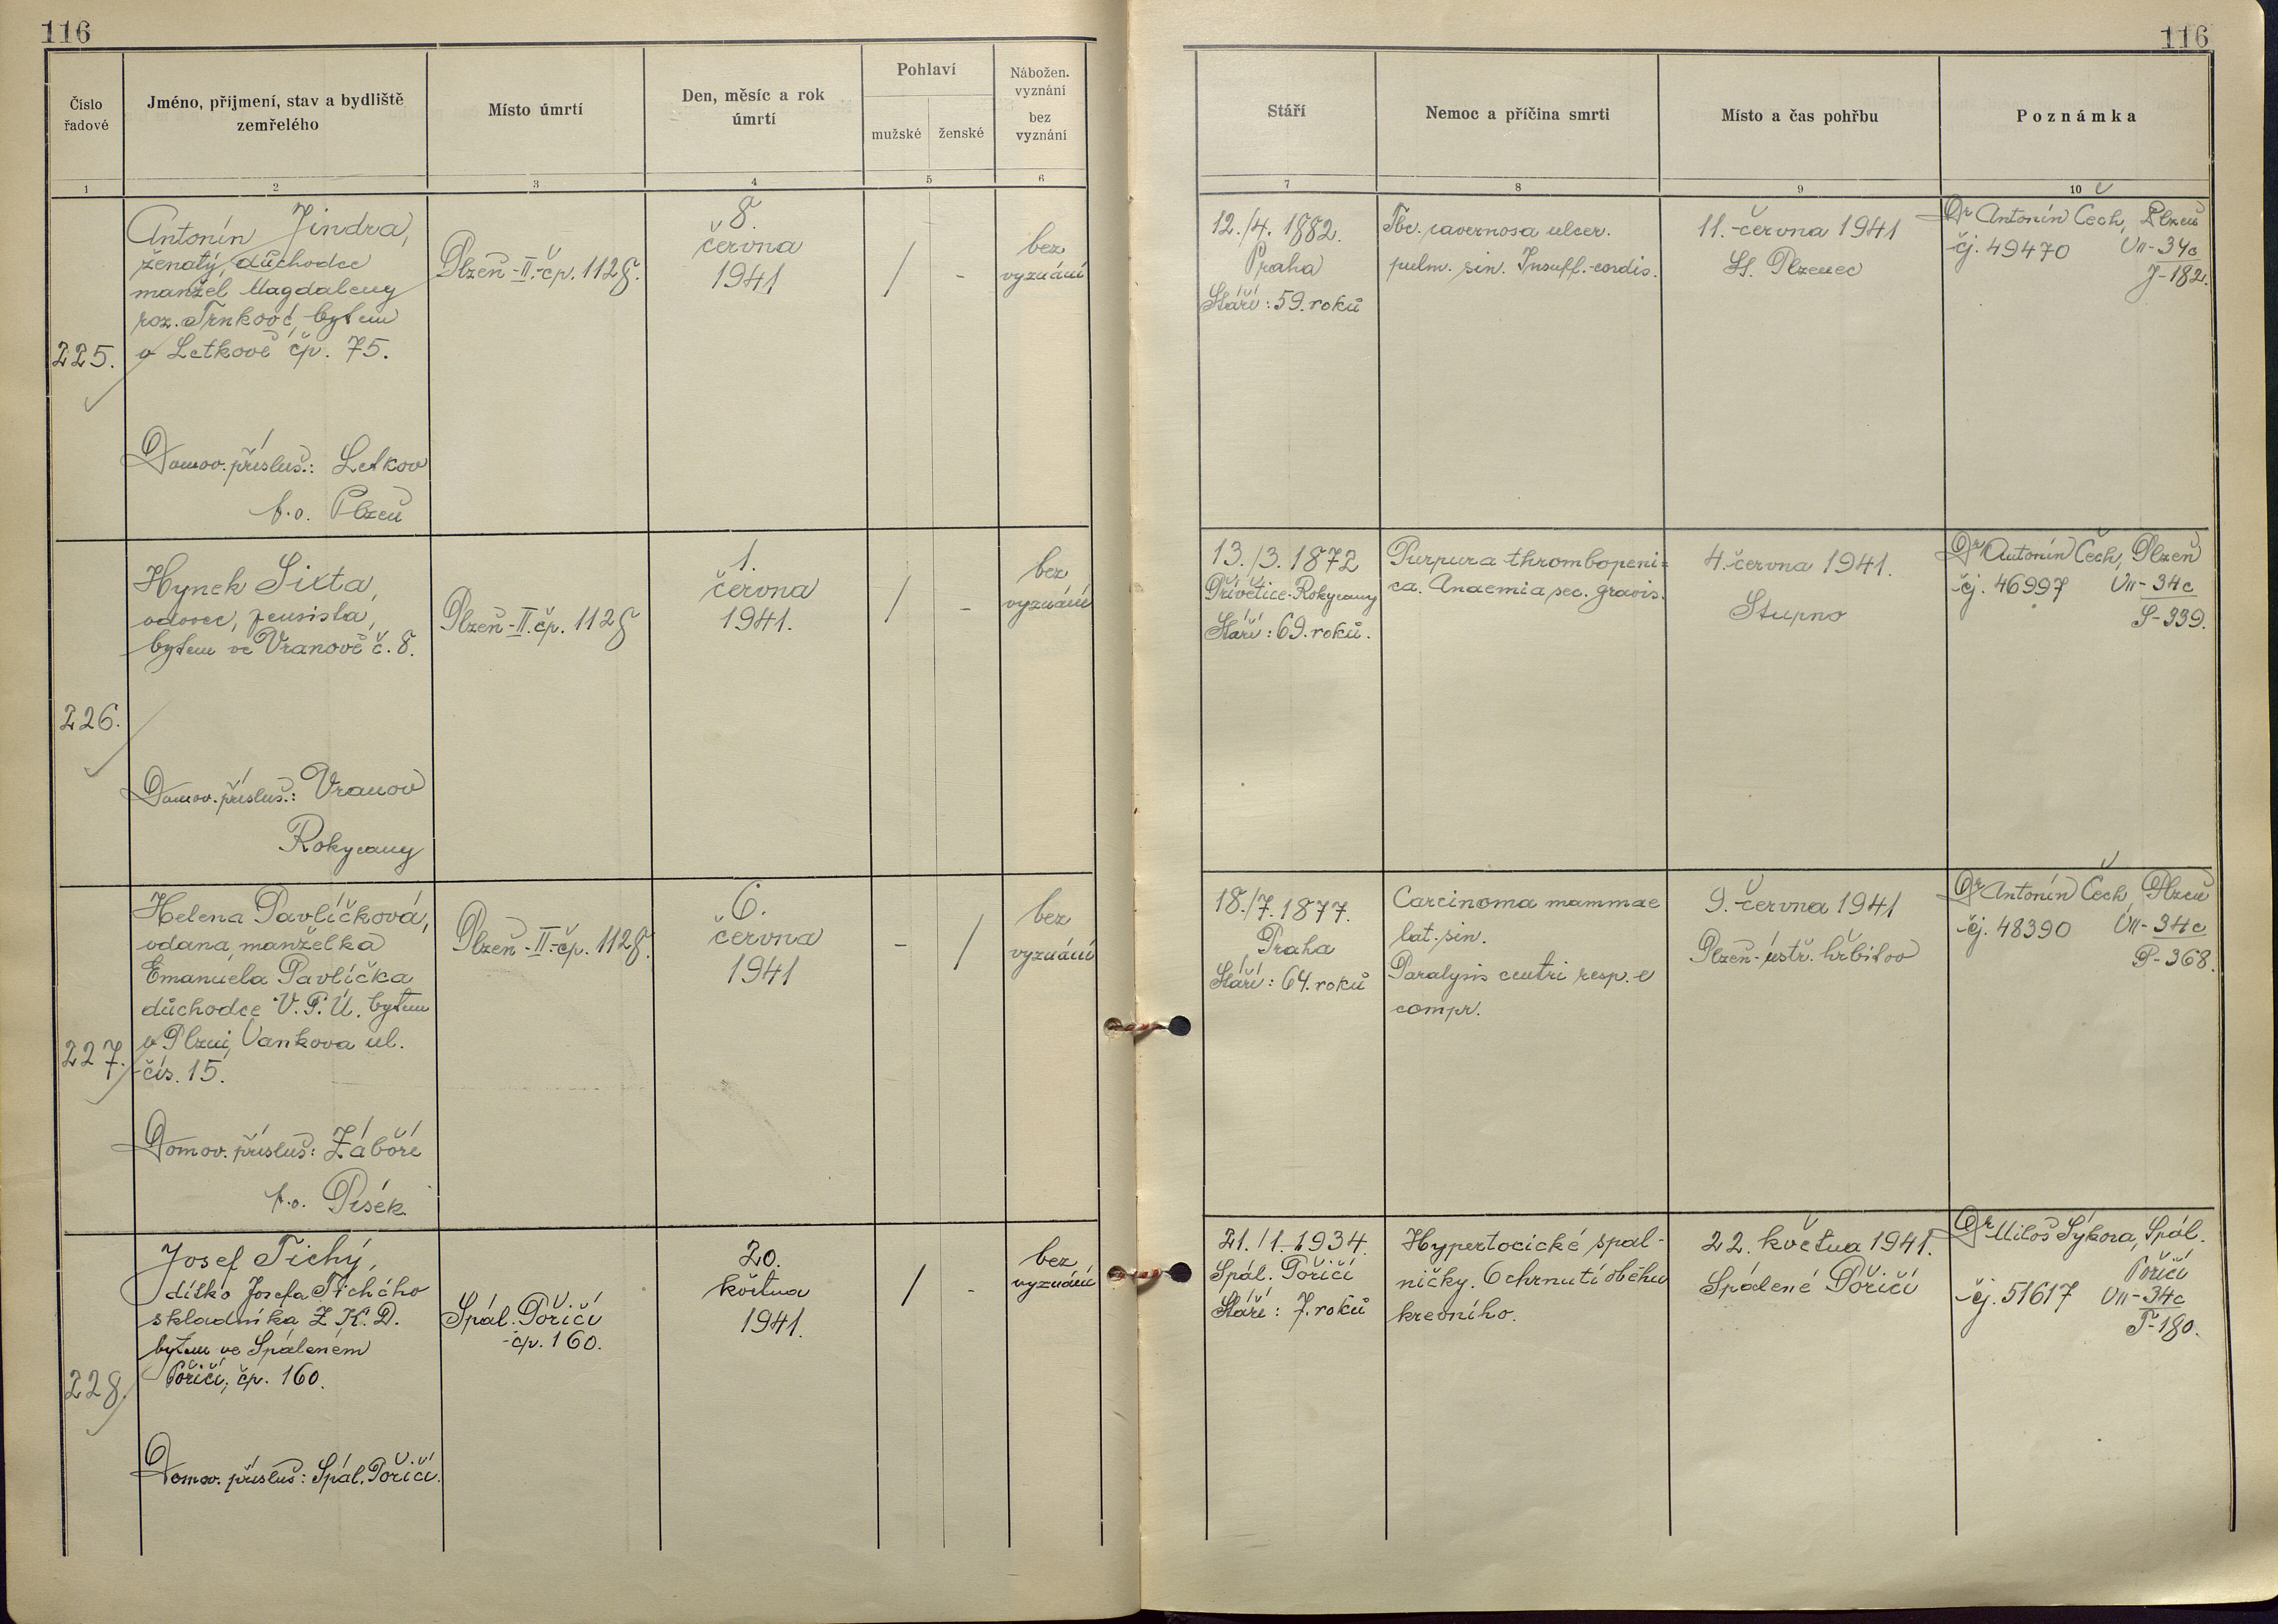 116
116
Číslo
řadové
Jméno, příjmení, stav a bydliště
zemřelého
Místo úmrtí
Den, měsíc a rok
úmrtí
Pohlaví
mužské
ženské
Nábožen.
vyznání
bez
vyznání
Stáří
Nemoc a příčina smrti
Místo a čas pohřbu
Poznámka
1
2
3
4
5
6
7
8
9
10
225.
Antonín Jindra,
ženatý, důchodce
manžel Magdaleny
roz. Trnkové, bytem
v Letkově čp. 75.
Domov. přísluš.: Letkov
p.o. Plzeň
Plzeň-II.-čp. 1128.
8.
června
1941
/
-
bez
vyznání
12./4. 1882.
Praha
Stáří: 59. roků
Tbc. cavernosa ulcer.
pulm. sin. Insuff.-cordis.
11. června 1941
St. Plzenec
Dr Antonín Čech, Plzeň
čj. 49470 VII-34c
J-182.
226.
Hynek Sixta,
vdovec, pensista,
bytem ve Vranově č. 8.
Domov. přísluš.: Vranov
Rokycany
Plzeň-II. čp. 1128
1.
června
1941.
/
-
bez
vyznání
13./3. 1872
Přívětice-Rokycany
Stáří: 69. roků.
Purpura thrombopeni=
ca. Anaemia sec. gravis.
4. června 1941.
Stupno
Dr Antonín Čech, Plzeň
čj. 46997 VII-34c
S-339.
227.
Helena Pavlíčková,
vdaná, manželka
Emanuela Pavlíčka
důchodce V.P.Ú. bytem
v Plzni, Vankova ul.
čís. 15.
Domov. přísluš: Záboří
p.o. Písek
Plzeň-II-čp. 1128.
6.
června
1941
-
/
bez
vyznání
18./7. 1877.
Praha
Stáří: 64. roků
Carcinoma mammae
lat. sin.
Paralysis centri resp. e
compr.
9. června 1941
Plzeň-ústř. hřbitov
Dr Antonín Čech, Plzeň
čj. 48390 VII-34c
P-368.
228.
Josef Tichý,
dítko Josefa Tichého
skladníka Z.K.D.
bytem ve Spáleném
Poříčí, čp. 160.
Domov. přísluš: Spál. Poříčí.
Spál. Poříčí
čp. 160.
20.
května
1941.
/
-
bez
vyznání
21./1. 1934.
Spál. Poříčí
Stáří: 7. roků
Hypertocické spal-
ničky. Ochrnutí oběhu
krevního.
22. května 1941.
Spálené Poříčí
Dr Miloš Sýkora, Spál.
Poříčí
čj. 51617 VII-34c
T-180.